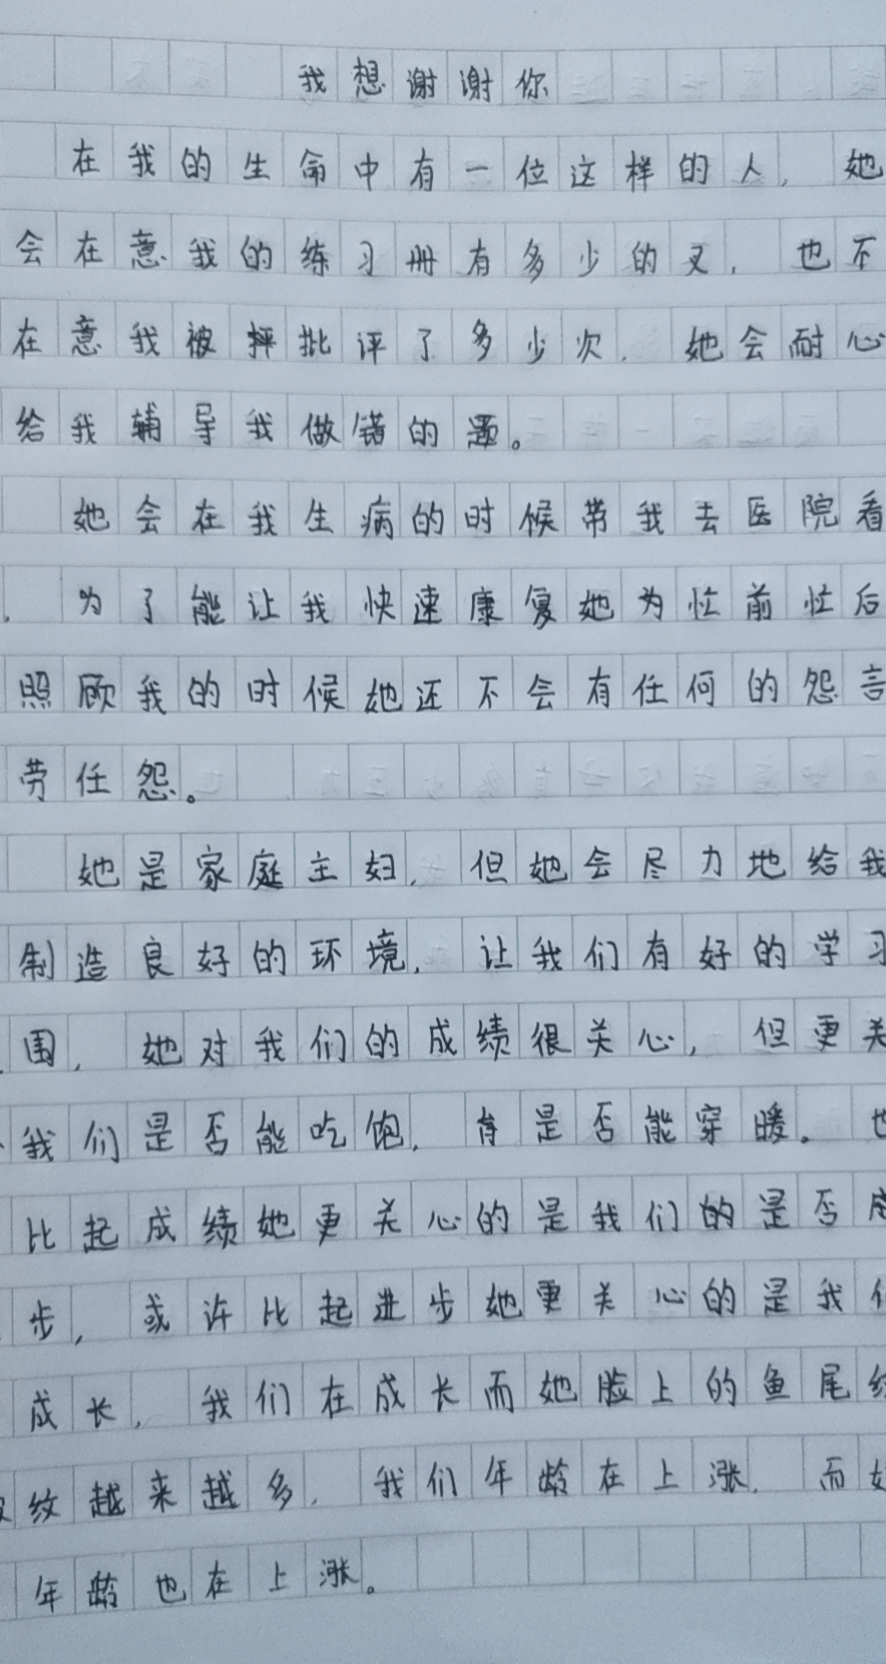 我想谢谢你
在我的生命中有一位这样的人，她
会在意我的练习册有多少的叉，也不
在意我被批评了多少次，她会耐心
给我辅导我做错的题。
她会在我生病的时候带我去医院看
，为了能让我快速康复她为忙前忙后
照顾我的时候她还不会有任何的怨言
劳任怨。
她是家庭主妇，但她会尽力地给我
制造良好的环境，让我们有好的学习
围，她对我们的成绩很关心，但更关
我们是否能吃饱，是否能穿暖。也
比起成绩她更关心的是我们的是否
步，或许比起进步她更关心的是我们
成长，我们在成长而她脸上的鱼尾纹
纹越来越多，我们年龄在上涨，而她
年龄也在上涨。